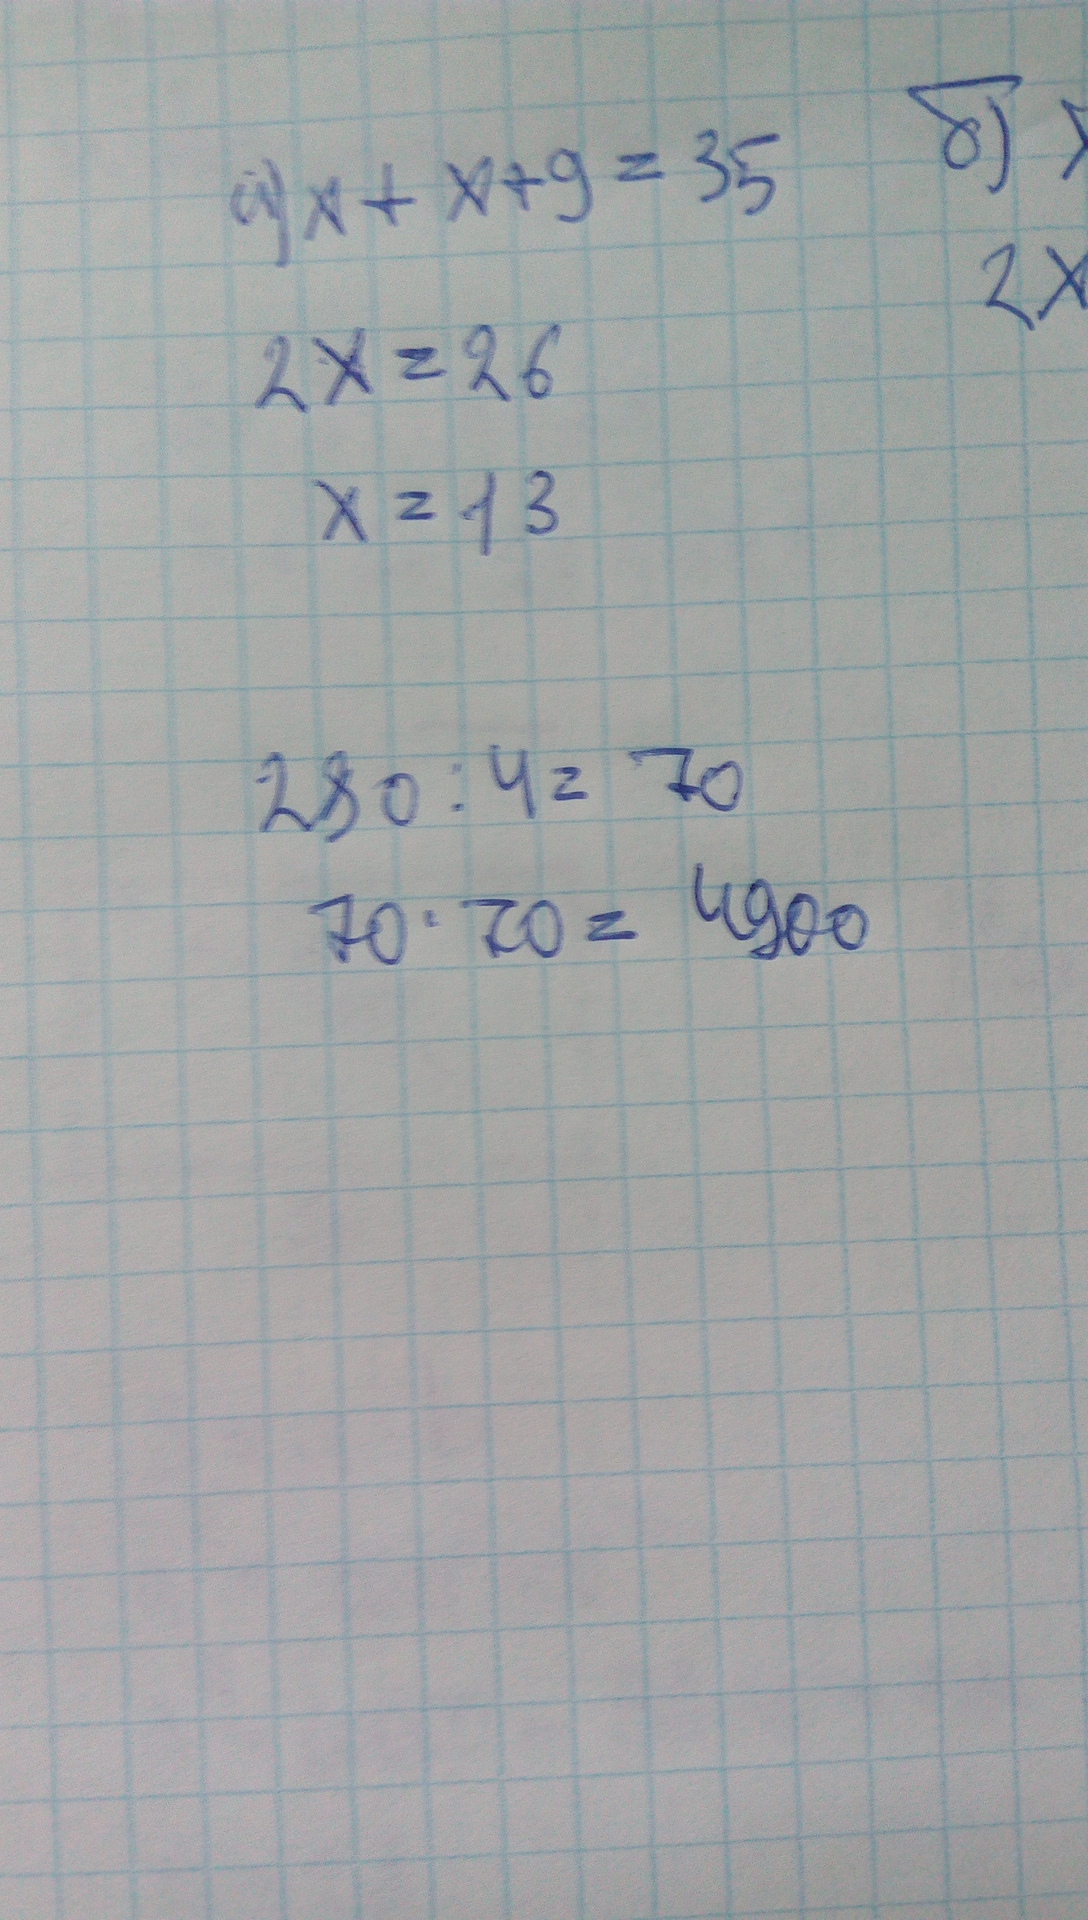 а) x + x + 9 = 35
2x = 26
x = 13
б) x
2x
280 : 4 = 70
70 · 70 = 4900